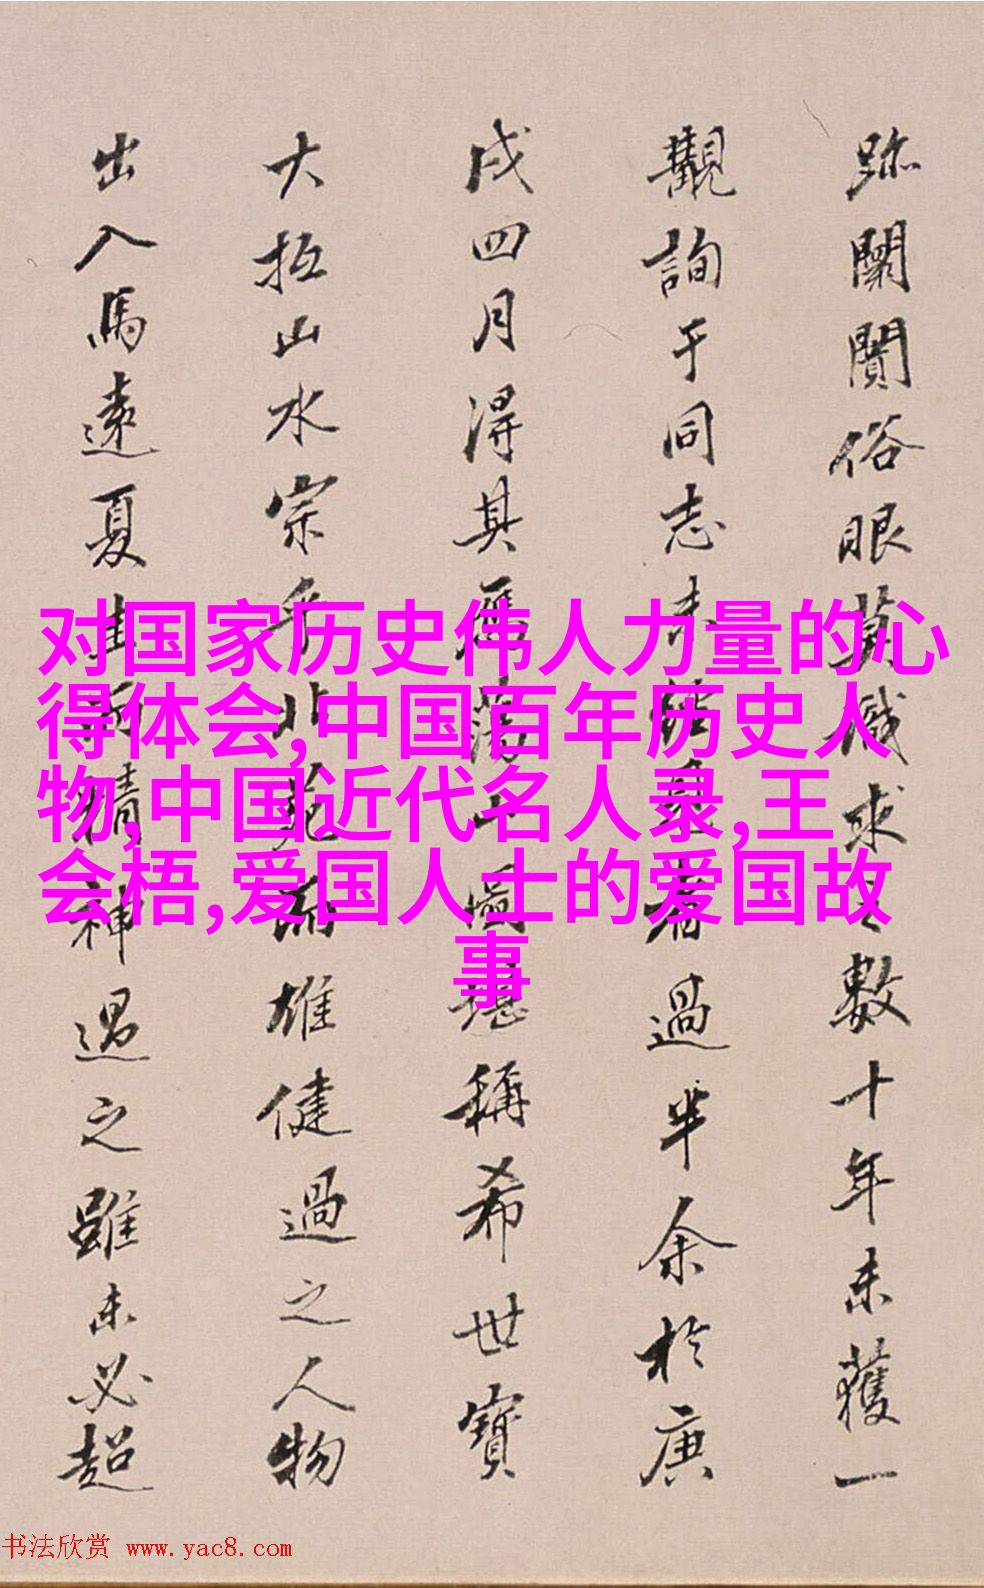 跡闤闠俗眼莫識求之數十年未獲一
觀詢于同志未能見者過半余於庚
戌四月得其雁蕩山圖堪稱希世寶
大抵山水宗乎北苑而雄健過之人物
出入馬遠夏珪而精神過之雖未必超
对国家历史伟人力量的心
得体会,中国百年历史人
物,中国近代名人录,王
会梧,爱国人士的爱国故
事
书法欣赏 www.yac8.com